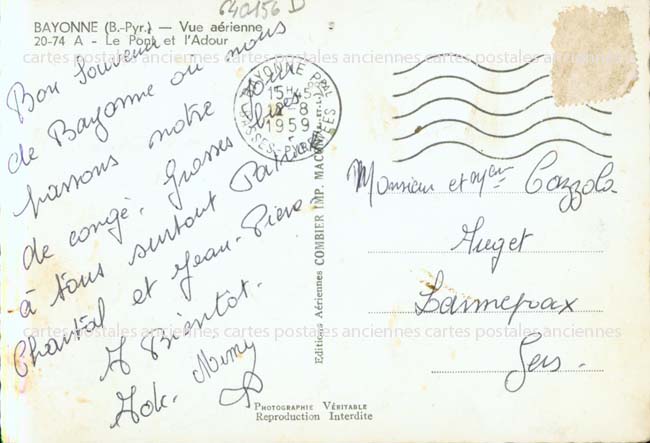 640156 D
BAYONNE (B.-Pyr.) — Vue aérienne
20-74 A - Le Pont et l'Adour
Bon Souvenir
de Bayonne où nous
passons notre
de congé. Grosses bises
à tous surtout
Chantal et Jean-Pierre
A Bientôt.
Mimy
BAYONNE PPAL
15H45
-8
1959
BASSES-PYRENEES
Editions Aériennes COMBIER IMP. MACON
Monsieur et Mme Cazzola
Auget
Lannepax
Gers.
PHOTOGRAPHIE VÉRITABLE
Reproduction Interdite
cartes postales anciennes cartes postales anciennes cartes postales anciennes
cartes postales anciennes cartes postales anciennes cartes postales anciennes
cartes postales anciennes cartes postales anciennes cartes postales anciennes